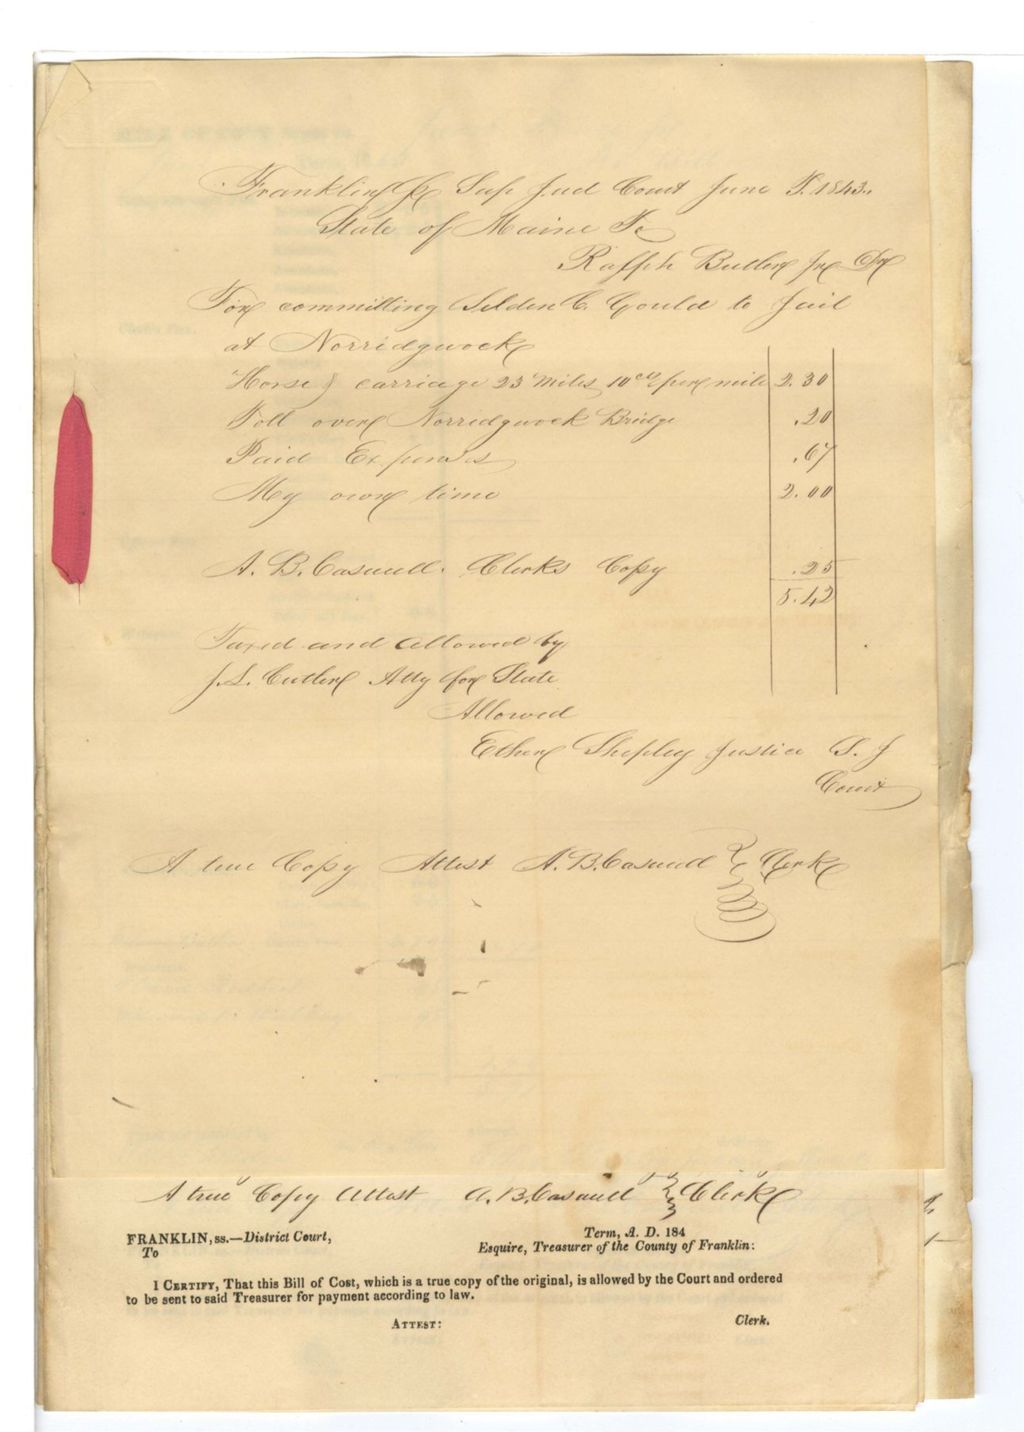 Franklin ss Sup Jud Court June T. 1843.
State of Maine To
Ralph Butler jr Dr
For committing Selden C. Gould to Jail
at Norridgwock
Horse & carriage 23 miles 10cts per mile 2.30
Toll over Norridgwock Bridge .20
Paid Expenses .67
My own time 2.00
A. B. Caswell. Clerks Copy .25
5.42
Taxed and allowed by
J. L. Cutler Atty for State
Allowed
Ether Shepley Justice S. J
Court
A true Copy Attest A. B. Caswell Clerk
A true Copy Attest A. B. Caswell Clerk
FRANKLIN, ss.—District Court, Term, A. D. 184
To Esquire, Treasurer of the County of Franklin:
I CERTIFY, That this Bill of Cost, which is a true copy of the original, is allowed by the Court and ordered
to be sent to said Treasurer for payment according to law.
ATTEST: Clerk.